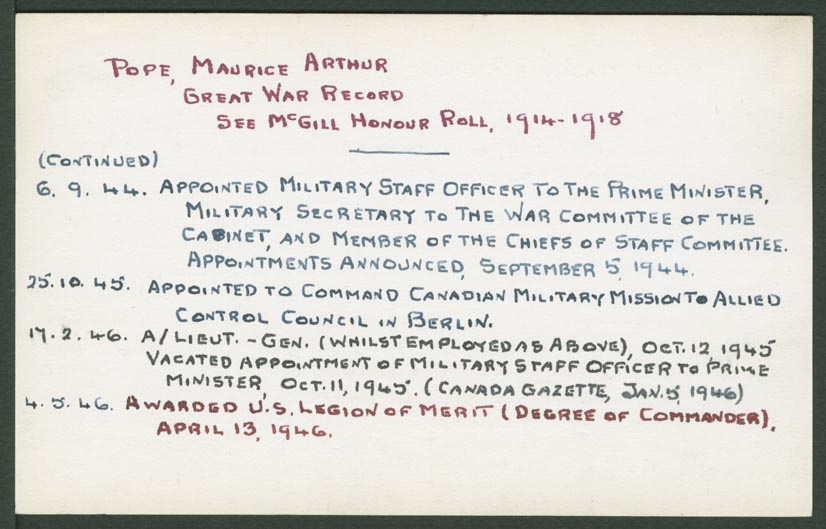 POPE, MAURICE ARTHUR
GREAT WAR RECORD
SEE McGILL HONOUR ROLL, 1914-1918
(CONTINUED)
6. 9. 44. APPOINTED MILITARY STAFF OFFICER TO THE PRIME MINISTER,
MILITARY SECRETARY TO THE WAR COMMITTEE OF THE
CABINET, AND MEMBER OF THE CHIEFS OF STAFF COMMITTEE.
APPOINTMENTS ANNOUNCED, SEPTEMBER 5, 1944.
25. 10. 45. APPOINTED TO COMMAND CANADIAN MILITARY MISSION TO ALLIED
CONTROL COUNCIL IN BERLIN.
17. 2. 46. A/LIEUT.-GEN. (WHILST EMPLOYED AS ABOVE), OCT. 12, 1945
VACATED APPOINTMENT OF MILITARY STAFF OFFICER TO PRIME
MINISTER, OCT. 11, 1945. (CANADA GAZETTE, JAN. 5, 1946)
4. 5. 46. AWARDED U.S. LEGION OF MERIT (DEGREE OF COMMANDER),
APRIL 13, 1946.